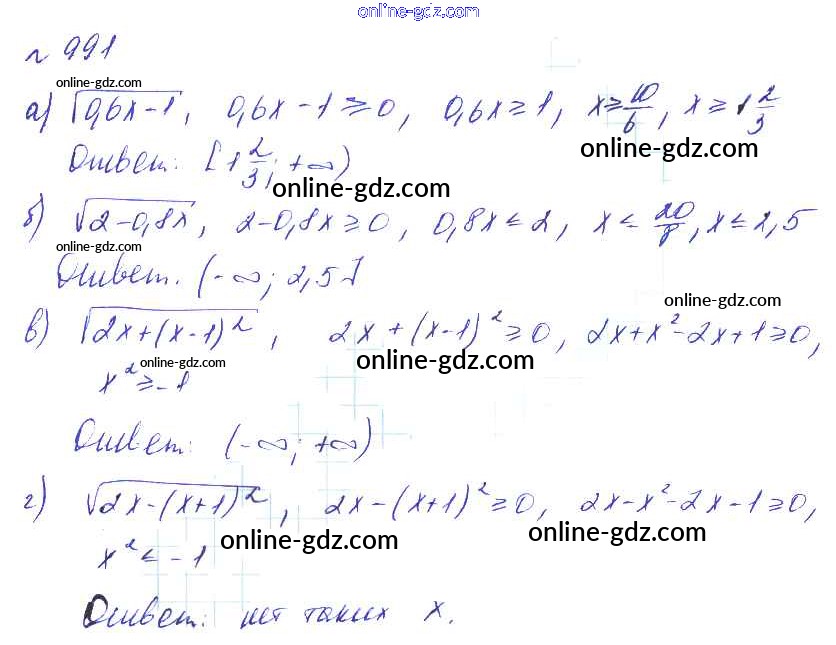 online-gdz.com
№ 991
online-gdz.com
а) √0,6x-1, 0,6x-1≥0, 0,6x≥1, x≥10/6, x≥1 2/3
online-gdz.com
Ответ: [1 2/3; +∞)
online-gdz.com
б) √2-0,8x, 2-0,8x≥0, 0,8x≤2, x≤20/8, x≤2,5
online-gdz.com
Ответ. (-∞; 2,5]
online-gdz.com
в) √2x+(x-1)², 2x+(x-1)²≥0, 2x+x²-2x+1≥0,
online-gdz.com
online-gdz.com
x²≥-1
Ответ: (-∞; +∞)
г) √2x-(x+1)², 2x-(x+1)²≥0, 2x-x²-2x-1≥0,
online-gdz.com
online-gdz.com
x²≤-1
Ответ: нет таких x.